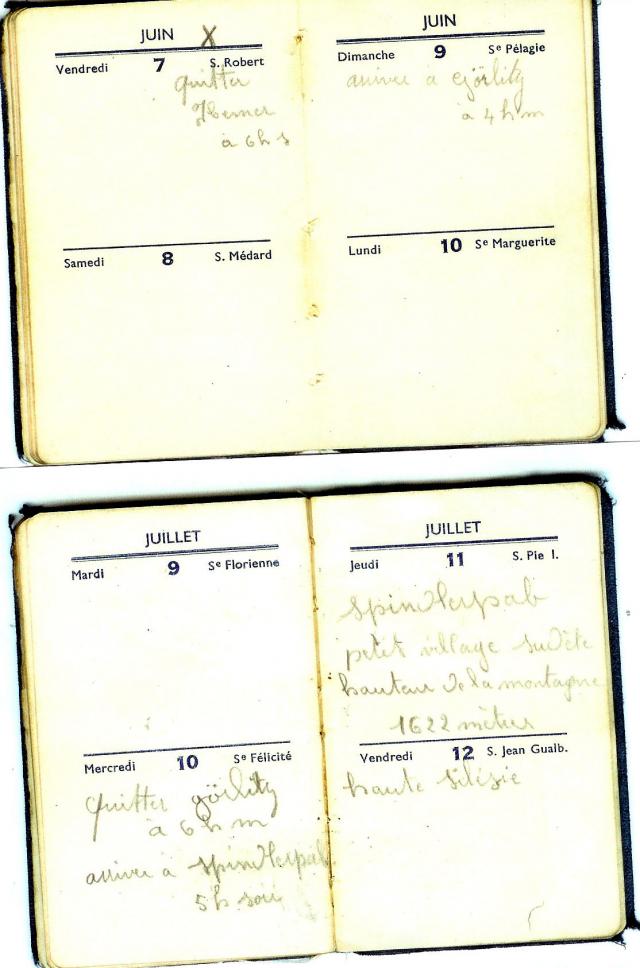 JUIN X
Vendredi 7 S. Robert
quitter
à 6 h s
Samedi 8 S. Médard
JUIN
Dimanche 9 Se Pélagie
arriver a Görlitz
à 4 h m
Lundi 10 Se Marguerite
JUILLET
Mardi 9 Se Florienne
Mercredi 10 Se Félicité
quitter görlitz
à 6 h m
arriver à spindlerpab
5 h soir
JUILLET
Jeudi 11 S. Pie I.
spindlerpab
petit village sudète
hauteur de la montagne
1622 mètres
Vendredi 12 S. Jean Gualb.
haute silésie